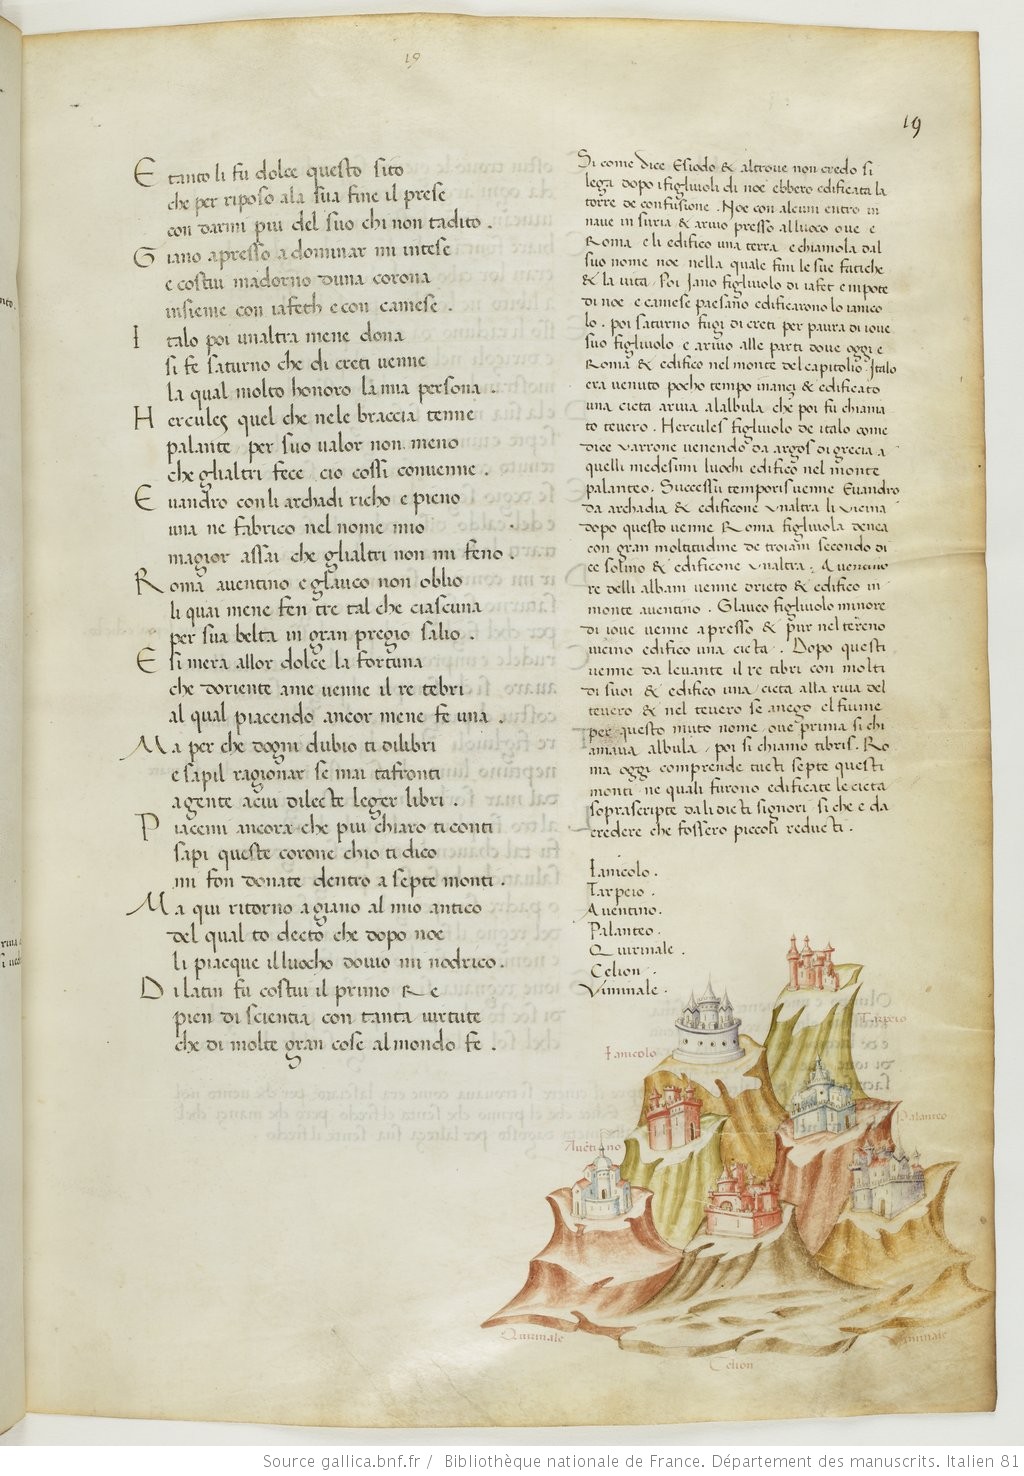 19
19
E tanto li fu dolce questo sito
che per riposo ala sua fine il prese
con darmi piu del suo chi non tadito .
G iano apresso a dominar mi intese
e costui madorno duna corona
insieme con iafeth e con camese .
I talo poi unaltra mene dona
si fe saturno che di creti uenne
la qual molto honoro la mia persona .
H ercules quel che nele braccia tenne
palante per suo ualor non meno
che glialtri fece cio cossi conuenne .
E uandro con li archadi richo e pieno
una ne fabrico nel nome mio
magior assai che glialtri non mi feno .
R oma auentino e glauco non oblio
li quai mene fen tre tal che ciascuna
per sua belta in gran pregio salio .
E si mera allor dolce la fortuna
che doriente ame uenne il re tebri
al qual piacendo ancor mene fe una .
M a per che dogni dubio ti dilibri
e sapil ragionar se mai tafronti
a gente a cui dilecte leger libri .
P iacemi ancora che piu chiaro ti conti
sapi queste corone chio ti dico
mi fon donate dentro a septe monti .
M a qui ritorno a giano al mio antico
del qual to decto che dopo noe
li piacque il luocho douio mi nodrico .
D i latin fu costui il primo Re
pien di scientia con tanta uirtute
che di molte gran cose al mondo fe .
Si come dice Esiodo & altroue non credo si
lega dopo i figliuoli di noe ebbero edificata la
torre de confusione . Noe con alcuni entro in
naue in siria & ariuo presso al luoco oue e
Roma e li edifico una terra e chiamola dal
suo nome noe nella quale fini le sue fatiche
& la uita . Poi Jano figliuolo di iafet e nipote
di noe e camese paesano edificarono lo ianico
lo . poi saturno fugi di creti per paura di ioue
suo figliuolo e ariuo alle parti doue oggi e
Roma & edifico nel monte del capitolio . Italo
era uenuto pocho tempo inanci & edificato
una cicta a riua al albula che poi fu chiama
to teuero . Hercules figliuolo de italo come
dice uarrone uenendo da argos di grecia a
quelli medesimi luochi edifico nel monte
palanteo . Successu temporis uenne Euandro
da archadia & edificone unaltra li uicina
dopo questo uenne Roma figliuola denea
con gran moltitudine de troiani secondo di
ce solino & edificone unaltra . Auentino
re delli albani uenne drieto & edifico in
monte auentino . Glauco figliuolo minore
di ioue uenne apresso & pur nel tereno
uicino edifico una cicta . Dopo questi
uenne da leuante il re tibri con molti
di suoi & edifico una cicta alla riua del
teuero & nel teuero se anego el fiume
per questo muto nome oue prima si chi
amaua albula poi si chiamo tibris . Ro
ma oggi comprende tucti septe questi
monti ne quali furono edificate le cicta
soprascripte da li dicti signori si che e da
credere che fossero piccoli reducti .
Ianicolo .
Tarpeio .
Auentino .
Palanteo .
Quirinale .
Celion .
Viminale .
Tarpeio
Ianicolo
Palanteo
Auentino
Quirinale
Viminale
Celion
Source gallica.bnf.fr / Bibliothèque nationale de France. Département des manuscrits. Italien 81